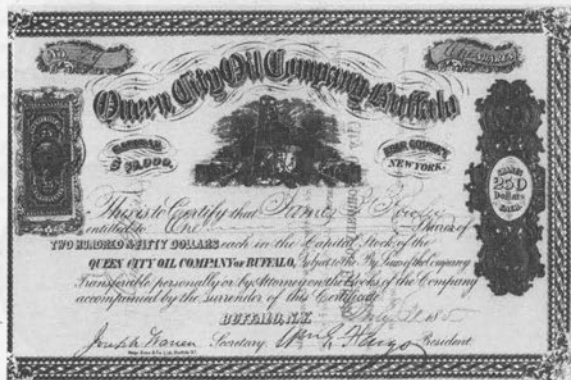 No.
SHARES
Queen City Oil Company Buffalo
CAPITAL
$75,000.
ERIE COUNTY
NEW YORK.
SHARES
250
Dollars
EACH
25
25
This is to Certify that James
entitled to One Shares of
TWO HUNDRED & FIFTY DOLLARS each in the Capital Stock of the
QUEEN CITY OIL COMPANY OF BUFFALO, Subject to the By Laws of the Company
Transferable personally or by Attorney on the Books of the Company
accompanied by the surrender of this Certificate
BUFFALO, N.Y.
Joseph Warren Secretary Wm G Fargo President